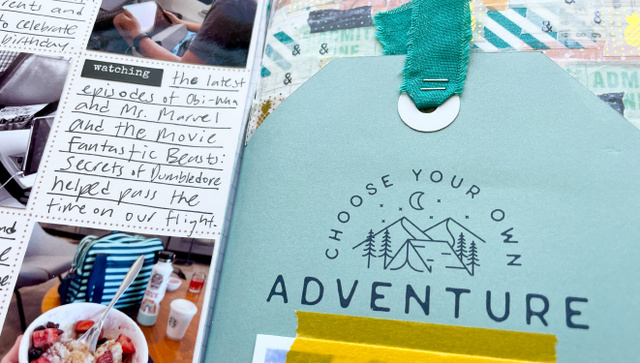 rents and
to celebrate
birthday.
watching the latest
episodes of Obi-Wan
and Ms. Marvel
and the movie
Fantastic Beasts:
Secrets of Dumbledore
helped pass the
time on our flight.
and
CHOOSE YOUR OWN
ADVENTURE
& &
&
ADMIT
ONE
ADMIT